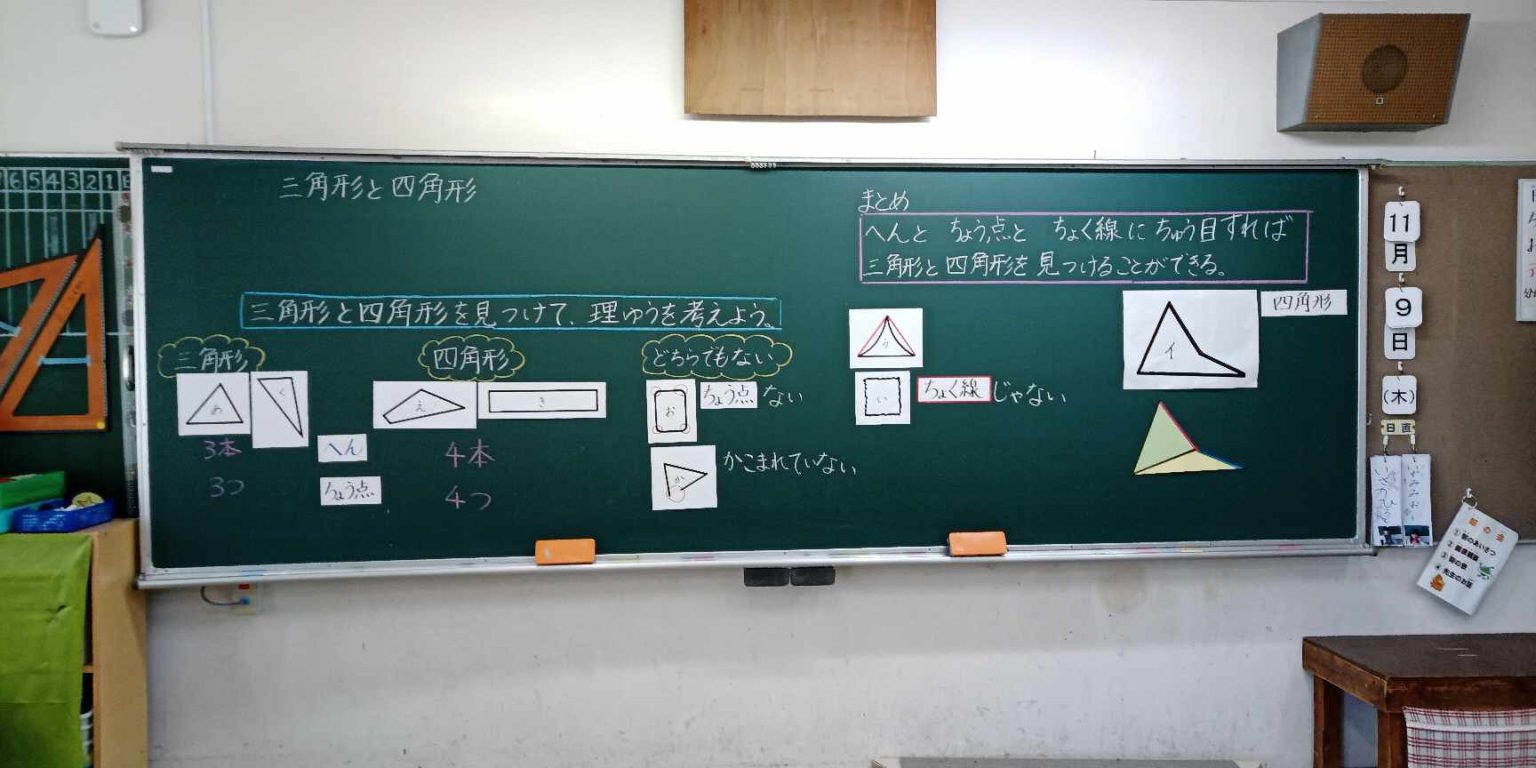 三角形と四角形
三角形と四角形を見つけて、理ゆうを考えよう。
三角形
あ
く
3本
3つ
へん
ちょう点
四角形
え
き
4本
4つ
どちらでもない
お
ちょう点 ない
か
かこまれていない
う
い
ちょく線 じゃない
まとめ
へんと ちょう点と ちょく線に ちゅう目すれば
三角形と四角形を見つけることができる。
イ
四角形
6 5 4 3 2 1
11
月
9
日
(木)
日直